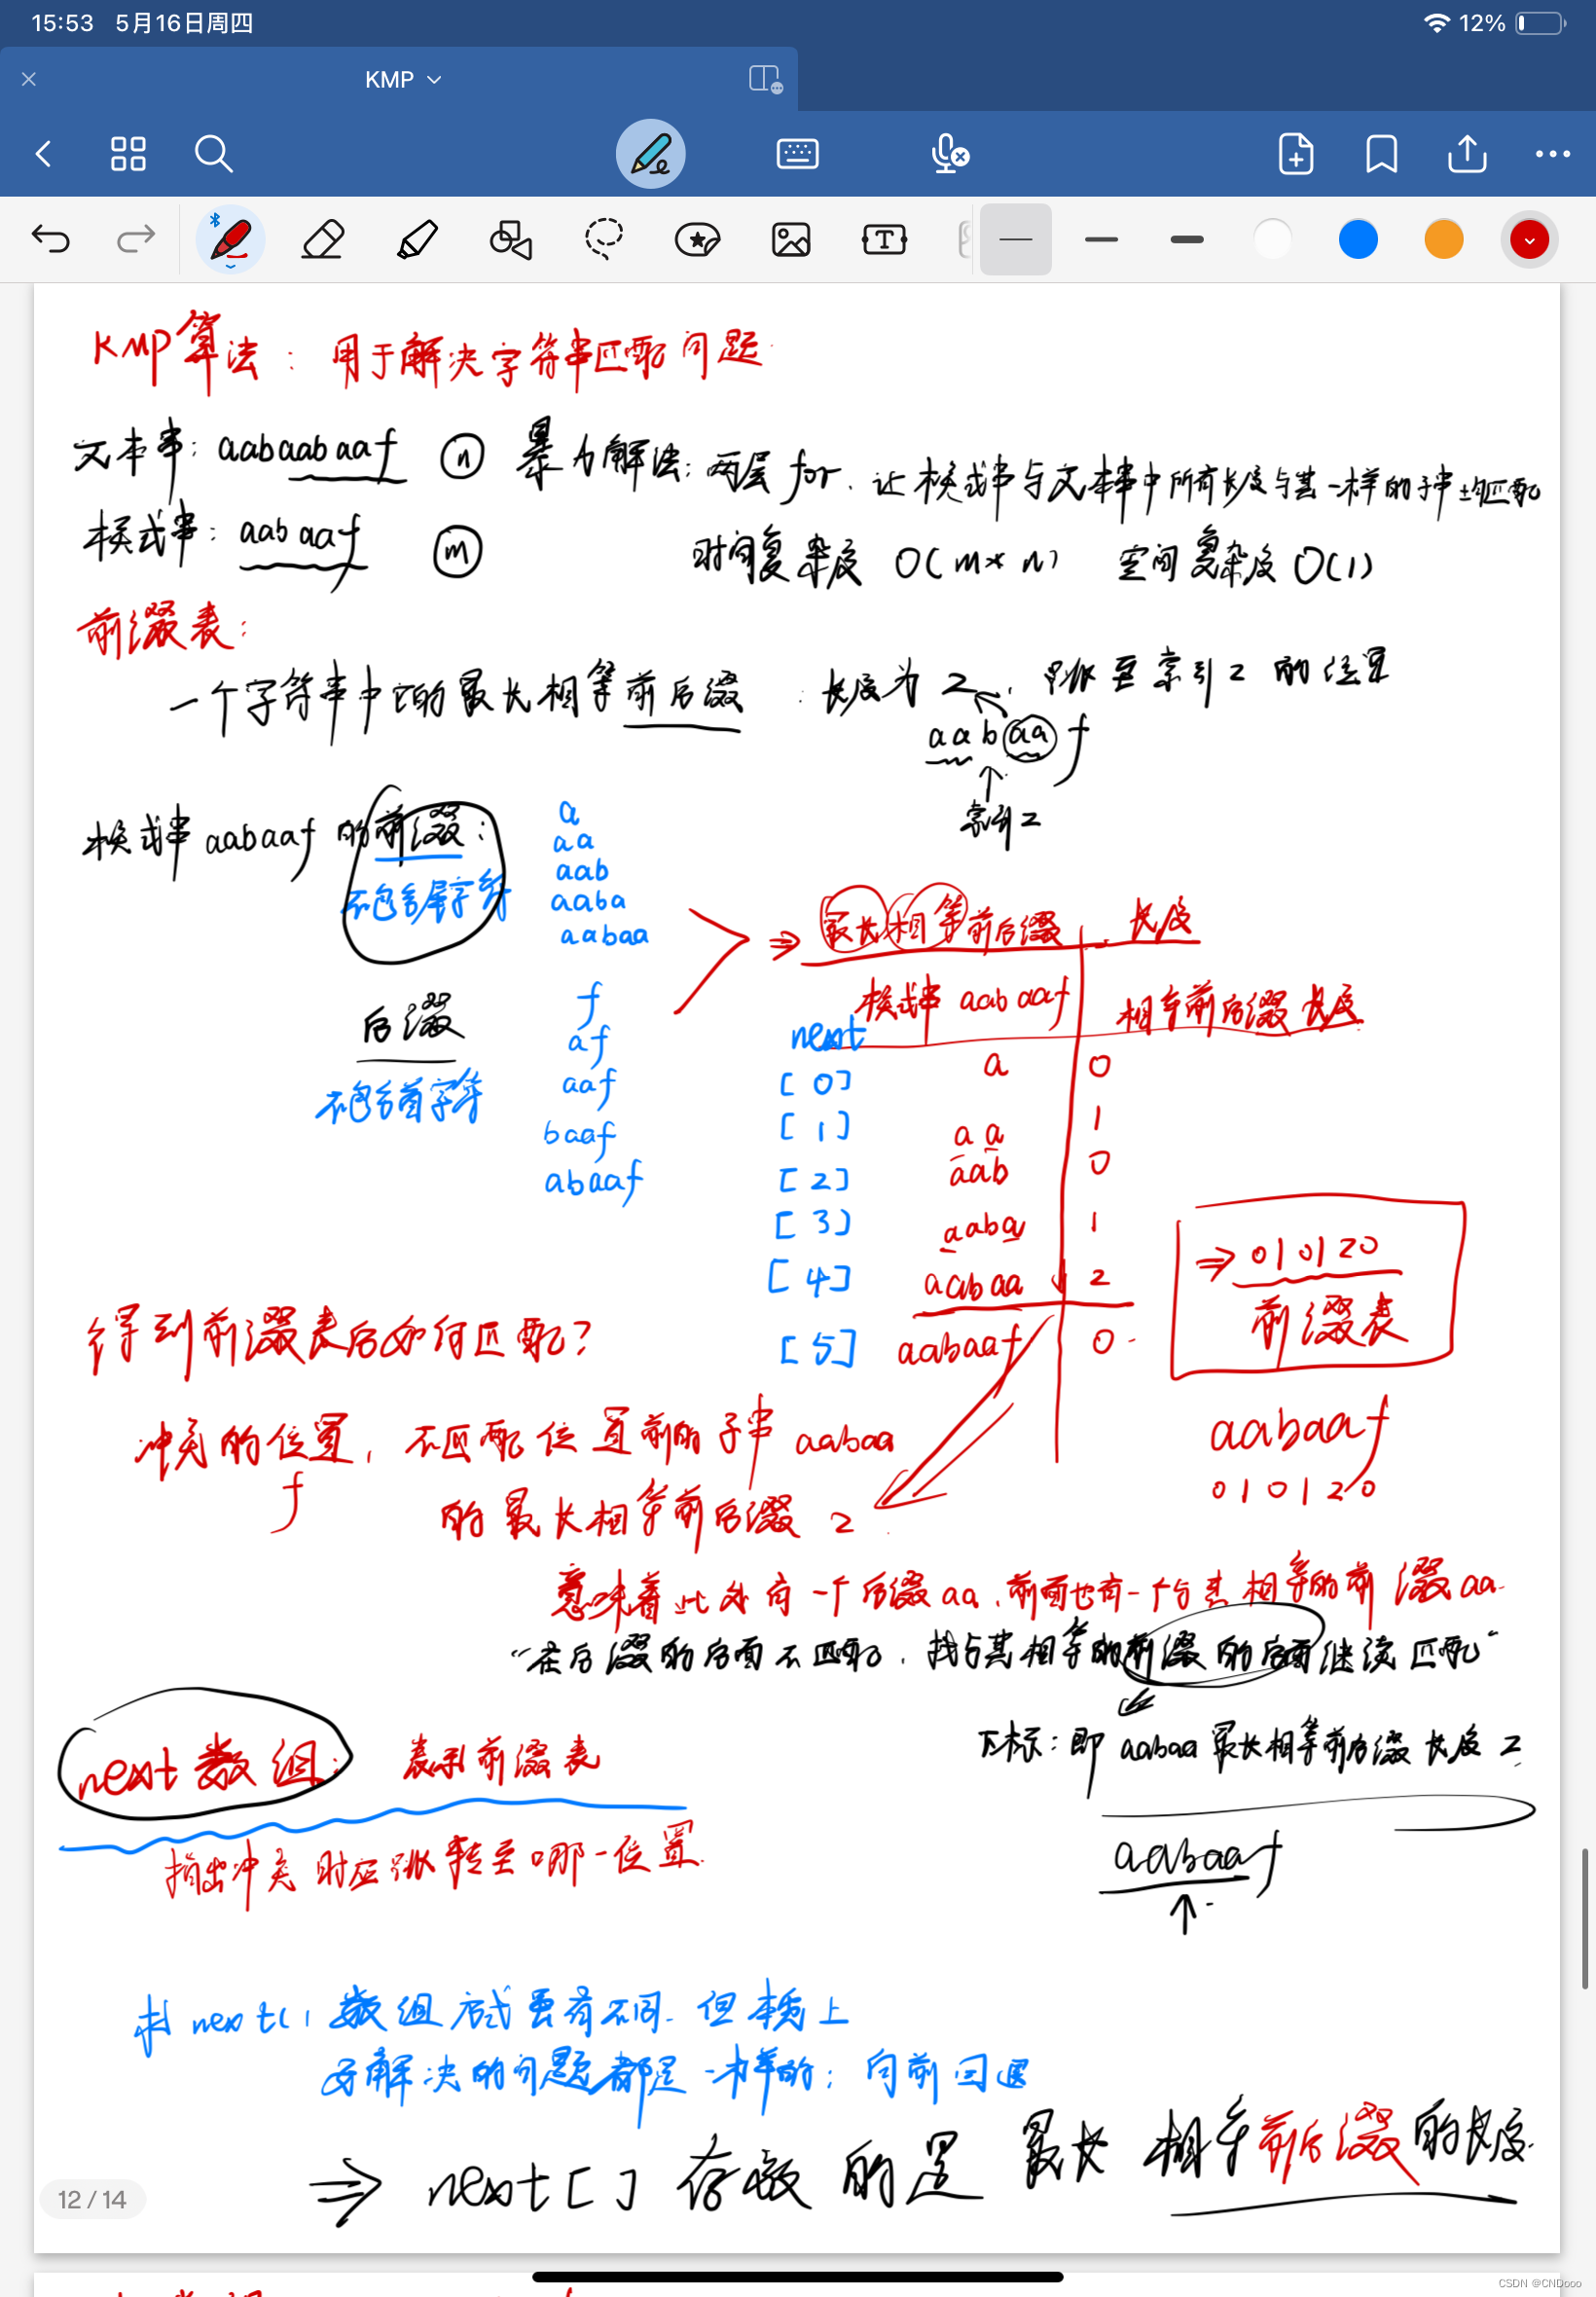 15:53 5月16日周四
12%
KMP
KMP算法：用于解决字符串匹配问题
文本串：aabaabaaf n 暴力解法：两层for，让模式串与文本串中所有长度与其一样的子串均匹配
模式串：aabaaf m
时间复杂度 O(m*n) 空间复杂度 O(1)
前缀表：
一个字符串中它的最长相等前后缀：长度为2，跳至索引2的位置
aabaaf
索引2
模式串aabaaf的前缀：
不包含尾字符
a
aa
aab
aaba
aabaa
后缀
不包含首字符
f
af
aaf
baaf
abaaf
⇒ 最长相等前后缀 长度
模式串 aabaaf 相等前后缀长度
next
[0] a 0
[1] aa 1
[2] aab 0
[3] aaba 1
[4] aabaa 2
[5] aabaaf 0
⇒ 010120
前缀表
aabaaf
010120
得到前缀表后如何匹配？
冲突的位置，不匹配位置前的子串 aabaa
f
的最长相等前后缀 2
意味着此处有一个后缀aa，前面也有一个与其相等的前缀aa.
“在后缀的后面不匹配，找与其相等的前缀的后面继续匹配”
下标：即 aabaa 最长相等前后缀长度 2
aabaaf
↑
next数组：表示前缀表
指出冲突时应跳转至哪一位置.
next[] 数组 虽有不同，但本质上
要解决的问题都是一样的：向前回退
⇒ next[] 存放的是 最长相等前后缀的长度.
12 / 14
CSDN @CNDooo